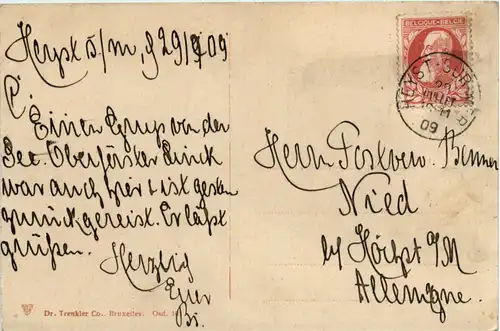 Heyst s/m, d 29/7 09
Einen Gruß von der
See. Oberförster
war auch hier & ist gestern
zurückgereist. Er läßt
grüßen.
Herzlich
Dr. Trenkler Co., Bruxelles. Osd.
BELGIQUE-BELGIË
HEYST-SUR-MER
29
JUILLET
09
Herrn Forstverw.
Nied
b/ Höchst a/M
Allemagne.